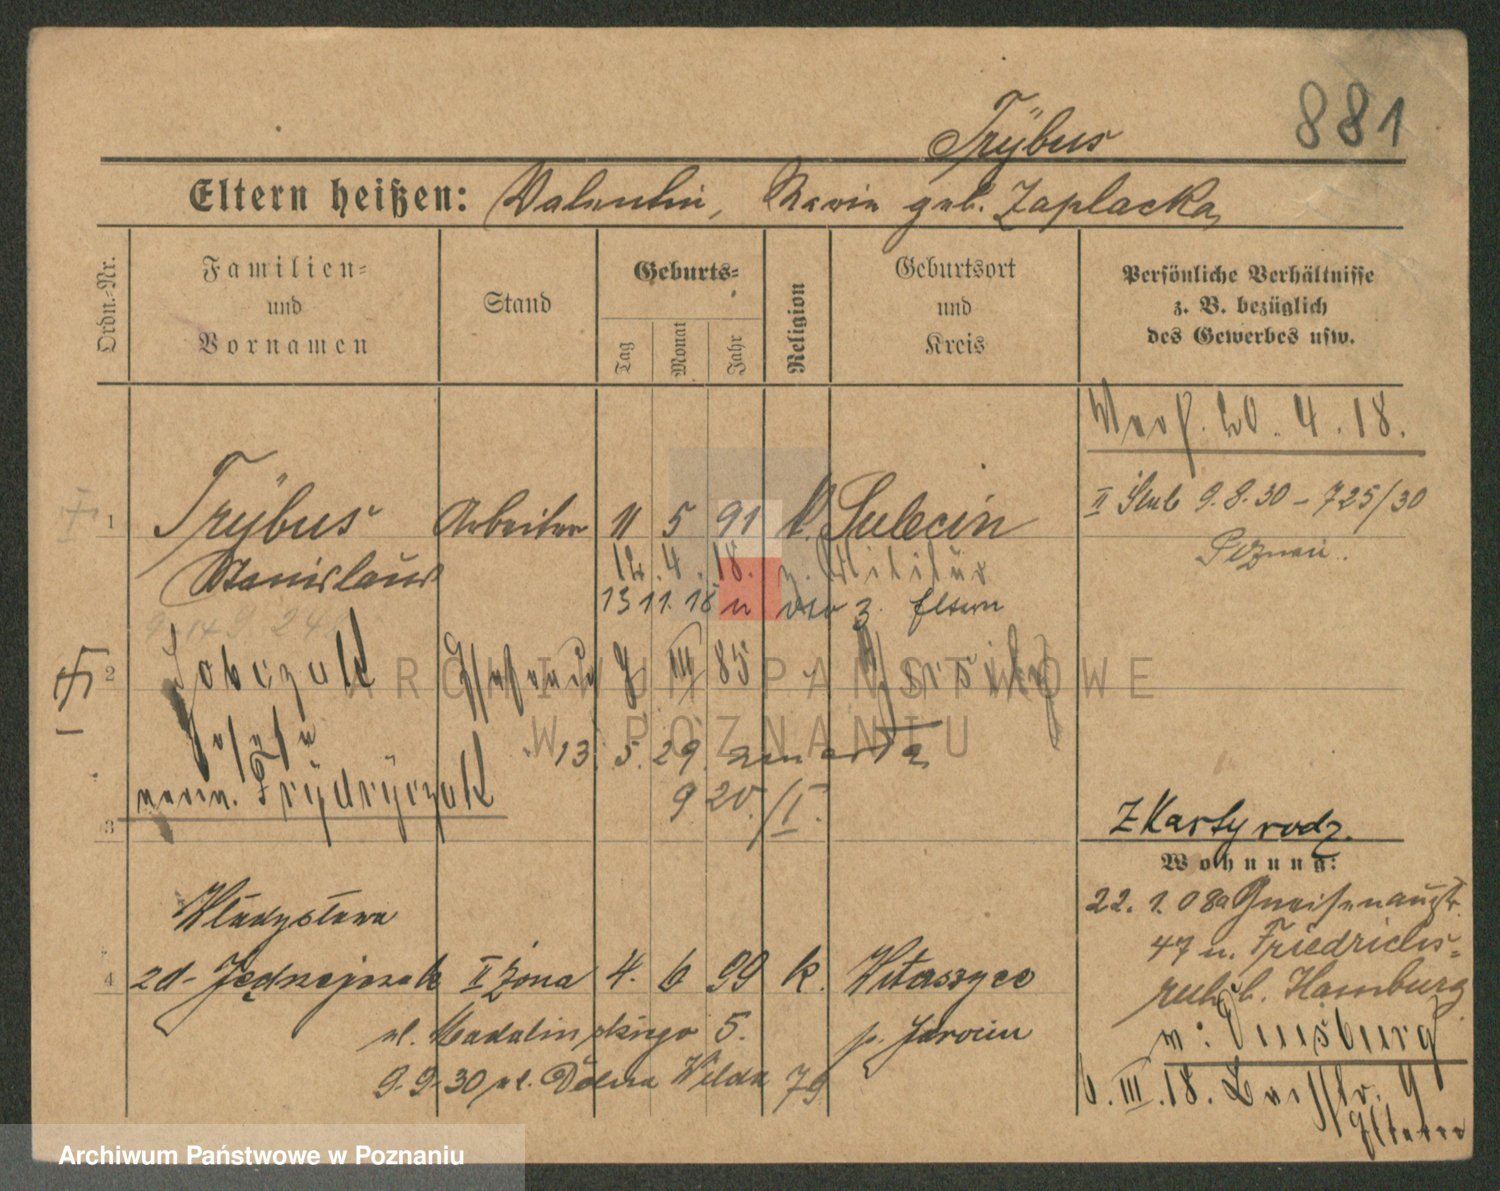 881
Trÿbus
Eltern heißen: Valentin, Marie geb. Zaplacka
Ordn.-Nr.
Familien= und Vornamen
Stand
Geburts=
Tag
Monat
Jahr
Religion
Geburtsort und Kreis
Persönliche Verhältnisse
z. B. bezüglich
des Gewerbes usw.
20.4.18.
1 Trÿbus Arbeiter 11 5 91 k. Sulecin
II Ślub 9.8.30 – 725/30
Poznań.
Stanislaus
12.4.18. z. Militär
13 11. 18 u z. Eltern
2 Ehefrau III 85
Josefa
13. 5. 29. zmarła
verw. Frÿdrÿczak
9 20./I.
3
Z Karty rodz.
Wohnung:
22. 1. 08 a Gneisenaustr.
Władysława
47 n. Friedrichs=
4 zd- Jędrzejczak II żona 4. 6 99 k. Witaszyce
ruh b. Hamburg
ul. Madalińskiego 5.
p. Jarocin
n: Duisburg
9.9.30 ul. Dolna Wilda 79
6. III. 18. 9
Eltern
ARCHIWUM PAŃSTWOWE
W POZNANIU
Archiwum Państwowe w Poznaniu